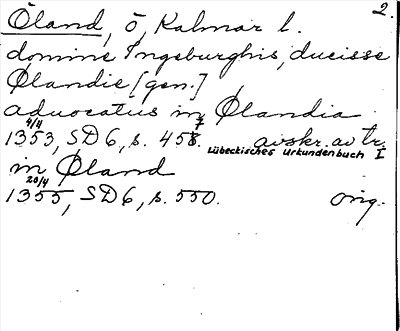 2.
Öland, ö, Kalmar l.
domine Ingeburghis, ducisse
Ølandie [gen.]
aduocatus in Ølandia
4/4
1353, SD 6, s. 457. avskr. av tr.
Lübeckisches Urkundenbuch I
in Øland
20/4
1355, SD 6, s. 550. orig.